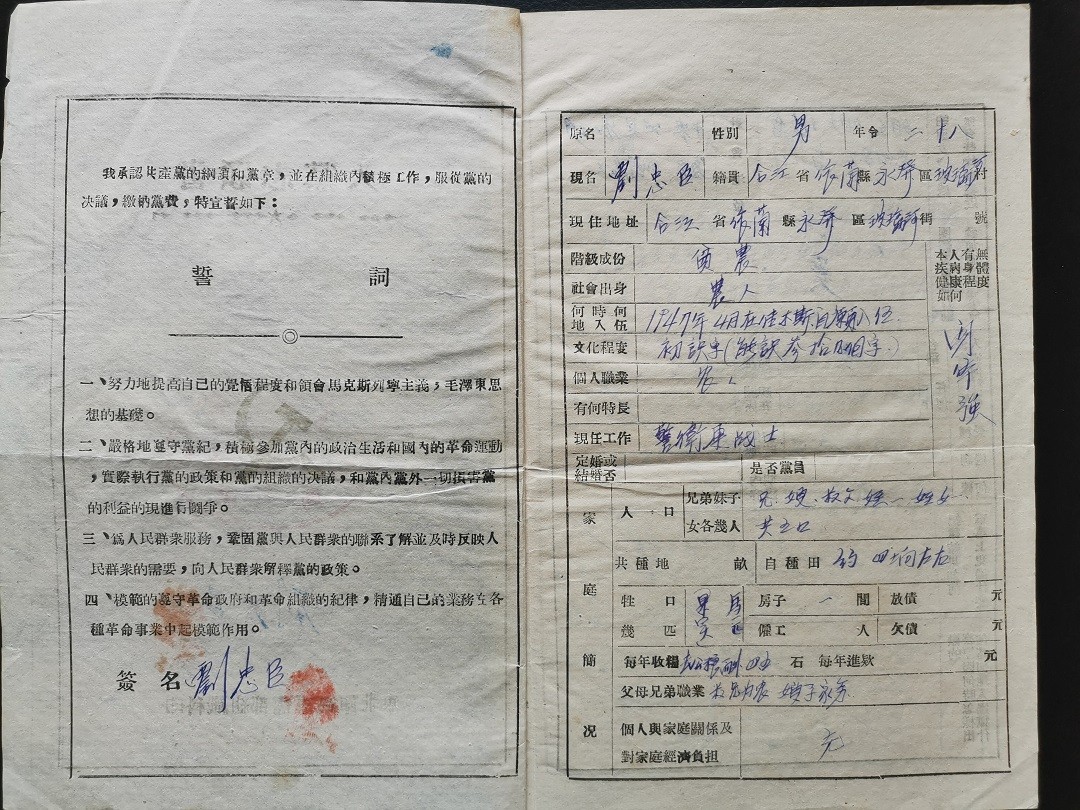 我承認共產黨的綱領和黨章,並在組織內積極工作,服從黨的
決議,繳納黨費,特宣誓如下:
誓 詞
一、努力地提高自己的覺悟程度和領會馬克斯列寧主義,毛澤東思
想的基礎。
二、嚴格地遵守黨紀,積極參加黨內的政治生活和國內的革命運動
,實際執行黨的政策和黨的組織的決議,和黨內黨外一切損害黨
的利益的現進行鬭爭。
三、爲人民群衆服務,鞏固黨與人民群衆的聯系了解並及時反映人
民群衆的需要,向人民群衆解釋黨的政策。
四、模範的遵守革命政府和革命組織的紀律,精通自己的業務在各
種革命事業中起模範作用。
簽 名 劉忠臣
原名 性別 男 年令 二十八
現名 劉忠臣 籍貫 合江省依蘭縣永發區 村
現住地址 合江省依蘭縣永發區 街 號
階級成份 貧農
社會出身 農人
何時何地入伍 1947年4月在佳木斯自願入伍
文化程度 初識字(能識叁拾個字)
個人職業 农人
有何特長
現任工作 警衛連战士
定婚或結婚否 是否黨員
本人有無疾病身體健康程度如何
家庭簡况
人口 兄弟妹子女各幾人 兄 嫂 一姪女 共五口
共種地 畝 自種田 約四垧左右
牲口幾匹 房子 一間 放債 元
僱工 人 欠債 元
每年收糧 石 每年進欵 元
父母兄弟職業
個人與家庭關係及對家庭經濟負担 无